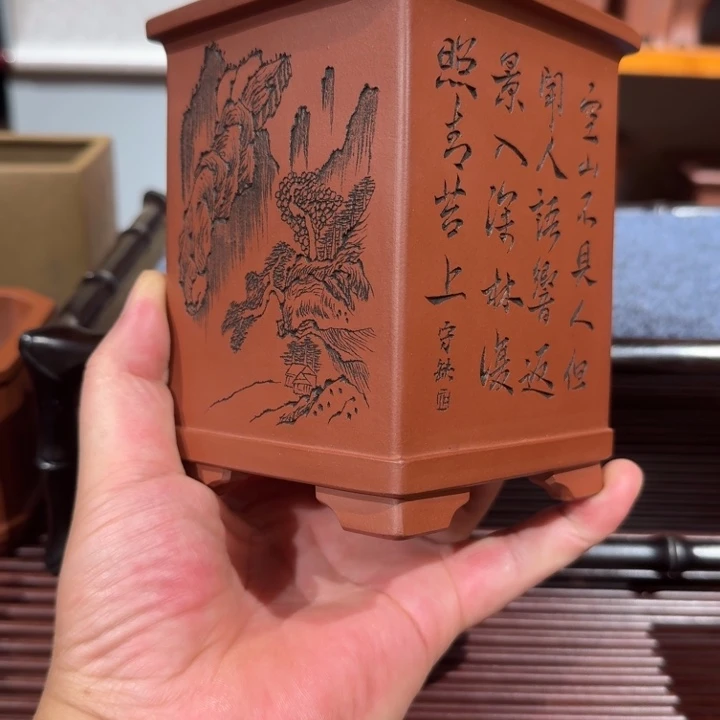 空山不見人但
聞人語響返
景入深林復
照青苔上